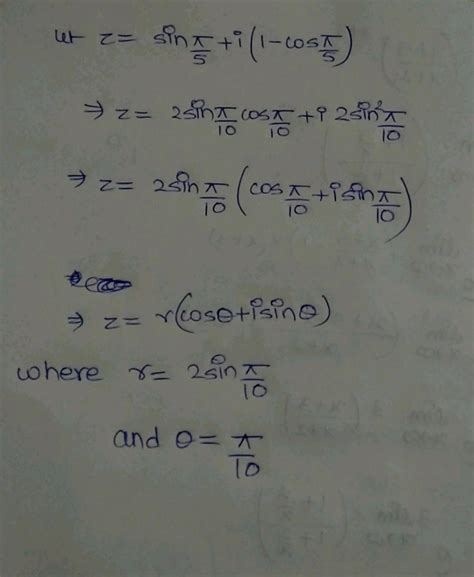 let z = sin π/5 + i (1 - cos π/5)
⇒ z = 2sin π/10 cos π/10 + i 2sin² π/10
⇒ z = 2sin π/10 (cos π/10 + i sin π/10)
⇒ z = r(cosθ + i sinθ)
where r = 2sin π/10
and θ = π/10